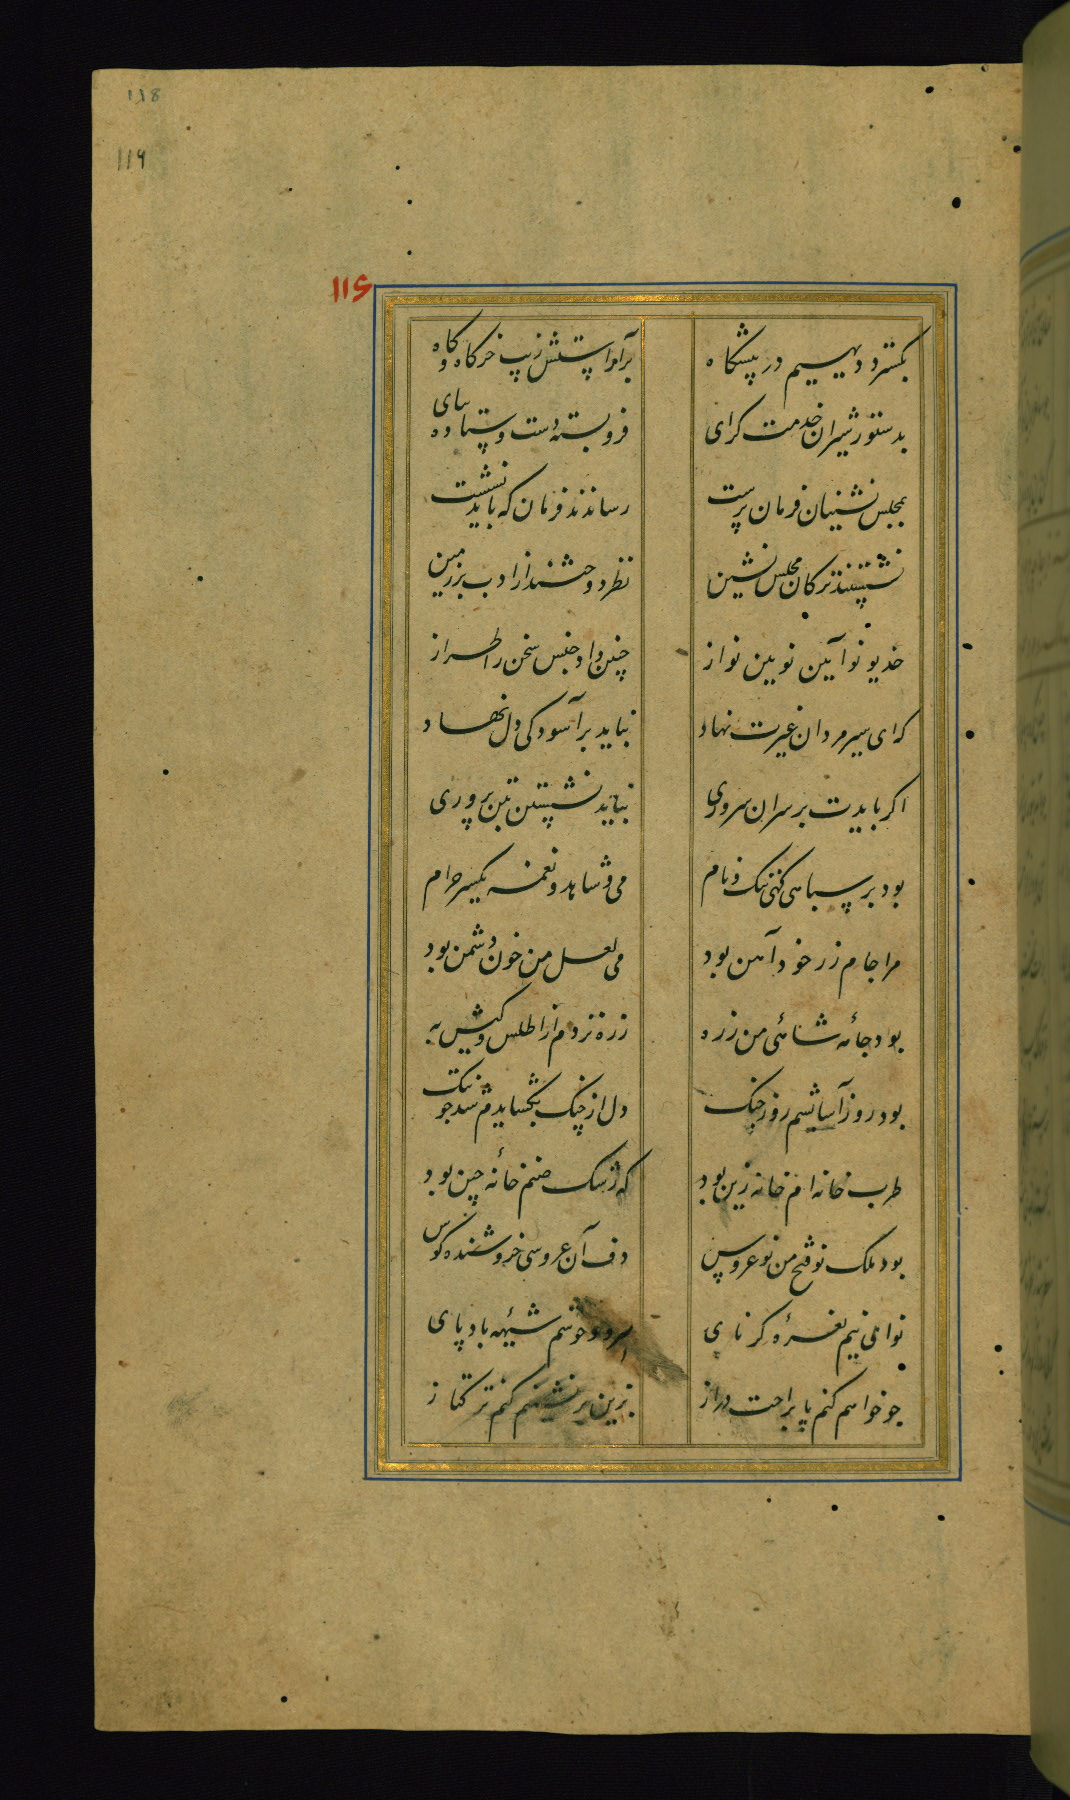 118
119
116
بکسترد دیهیم در پیشکاه برآراستش زیب خرکاه و کاه
بدستور شیران خدمت کرای فروبسته دست و ستاده بپای
بمجلس نشینان فرمان پرست رساندند فرمان که باید نشست
نشستند ترکان مجلس نشین نظر دوختند از ادب بر زمین
خدیو نوآیین نویین نواز چنین داد جنس سخن را طراز
که ای سیر مردان غیرت نهاد نباید بر آسودکی دل نهاد
اکر بایدت بر سران سروری نباید نشستن بتن پروری
بود بر سپاهی کنی ننک و نام می و شاهد و نغمه یکسر حرام
مرا جام زر خود آهن بود می لعل من خون دشمن بود
بود جامه شاهی من زره زره نزدم از اطلس و کیش به
بود روز آسایشم روز جنک دل از چنک نکشایدم
طرب خانه ام خانه زین بود که رشک صنم خانه چین بود
بود ملک نو فتح من نو عروس دف آن عروسی خروشنده کوس
نوا می نیم نعره کرنای سرود خوشم شیهه بادپای
چو خواهم کنم پا براحت دراز بزین برنشینم کنم ترکتاز